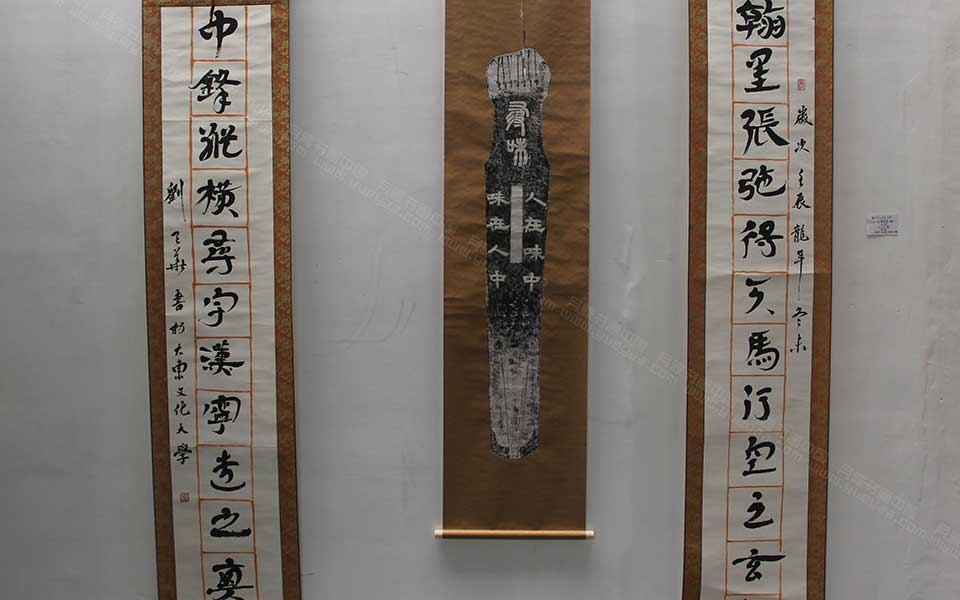 翰墨張弛得天馬行空之玄
歲次壬辰龍年冬末
尋味
人在味中
味在人中
中鋒縱橫尋宇漢寧之奧
劉華書於大東文化大學